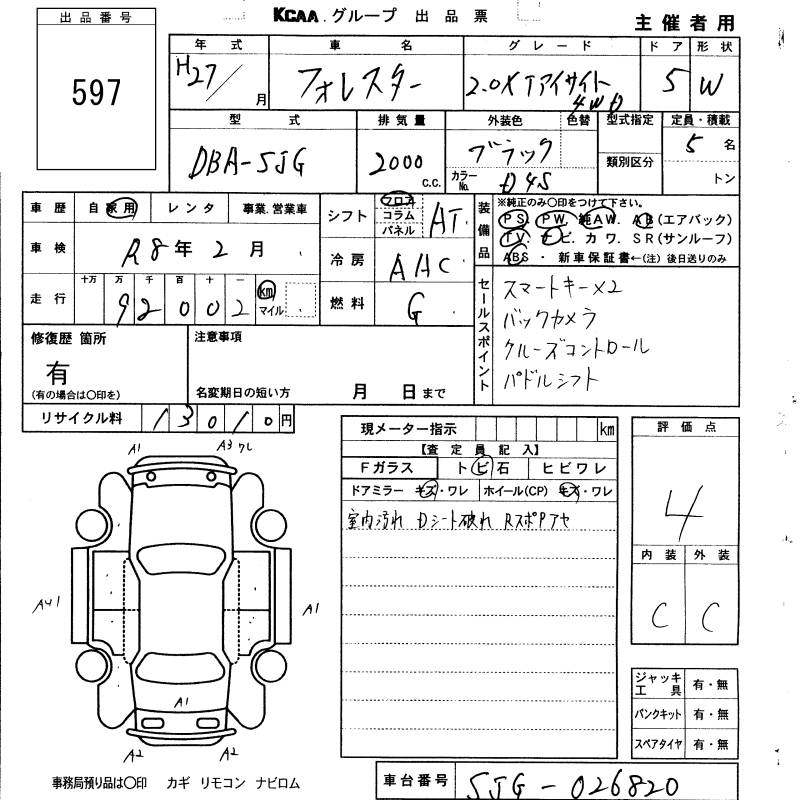 KCAA.グループ 出品票
主催者用
出品番号
597
年式 車名 グレード ドア 形状
H27/ 月 フォレスター 2.0XTアイサイト 4WD 5 W
型式 排気量 外装色 色替 型式指定 定員・積載
DBA-SJG 2000 C.C. ブラック 5 名
カラーNo. D4S 類別区分 トン
車歴 自家用 レンタ 事業.営業車
車検 R8年2月
走行 十万 万 千 百 十 一 km
92002 マイル
シフト フロア コラム パネル AT
冷房 AAC
燃料 G
装備品 ※純正のみ〇印をつけて下さい。
PS. PW. 純AW. AB(エアバック)
TV. ナビ. カワ. SR(サンルーフ)
ABS・新車保証書←(注)後日送りのみ
セールスポイント
スマートキー×2
バックカメラ
クルーズコントロール
パドルシフト
修復歴 箇所
有
(有の場合は〇印を)
注意事項
名変期日の短い方 月 日まで
リサイクル料 13010円
現メーター指示 km
【査定員記入】
Fガラス トビ石 ヒビワレ
ドアミラー キズ・ワレ ホイール(CP) キズ・ワレ
室内汚れ Dシート破れ RスポPアセ
評価点
4
内装 外装
C C
A1 A3ワレ
A41 A1
A1
A2 A2
ジャッキ工具 有・無
パンクキット 有・無
スペアタイヤ 有・無
事務局預り品は〇印 カギ リモコン ナビロム
車台番号 SJG-026820